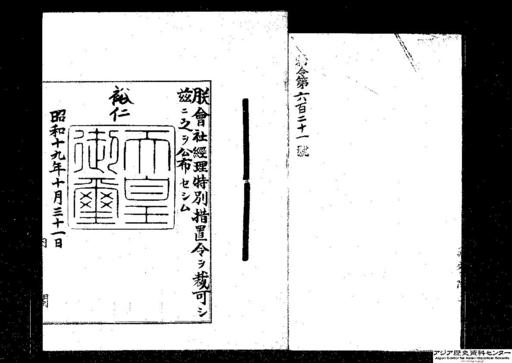 勅令第六百二十一號
朕會社經理特別措置令ヲ裁可シ
玆ニ之ヲ公布セシム
裕仁
天皇
御璽
昭和十九年十月三十一日
内閣
アジア歴史資料センター
Japan Center for Asian Historical Records